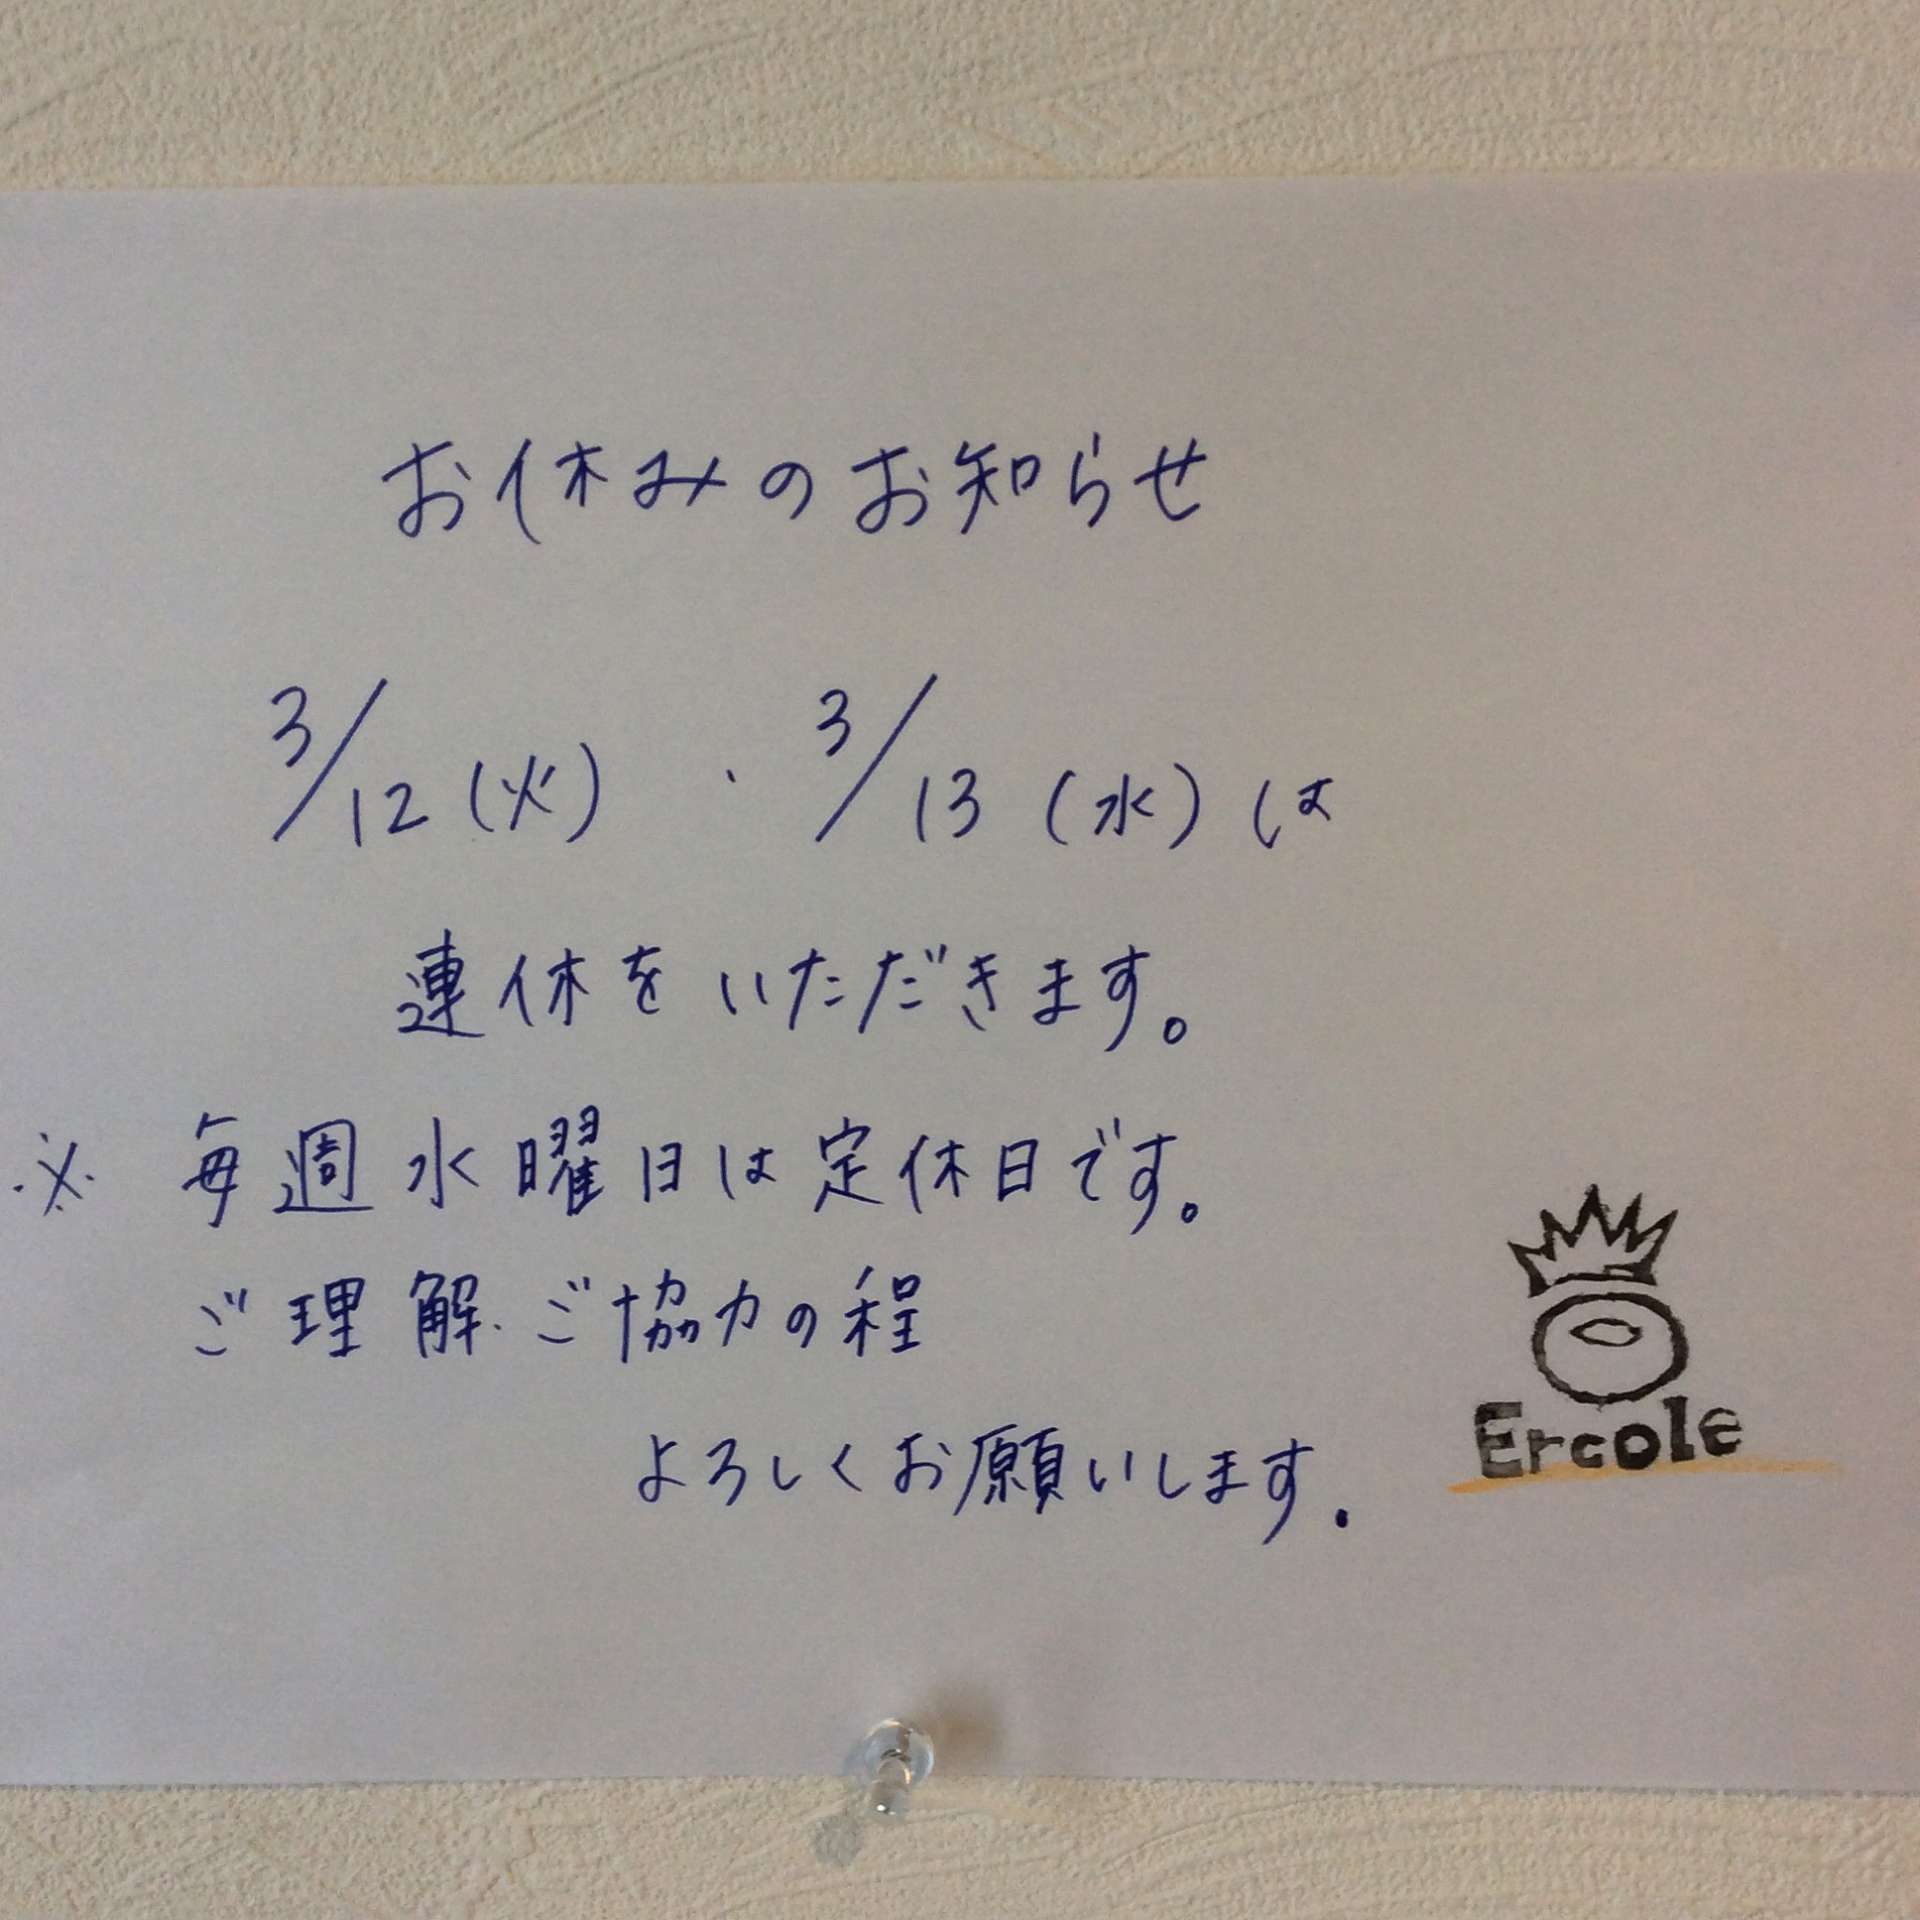 お休みのお知らせ
3/12(火)・3/13(水)は
連休をいただきます。
※ 毎週水曜日は定休日です。
ご理解・ご協力の程
よろしくお願いします.
Ercole